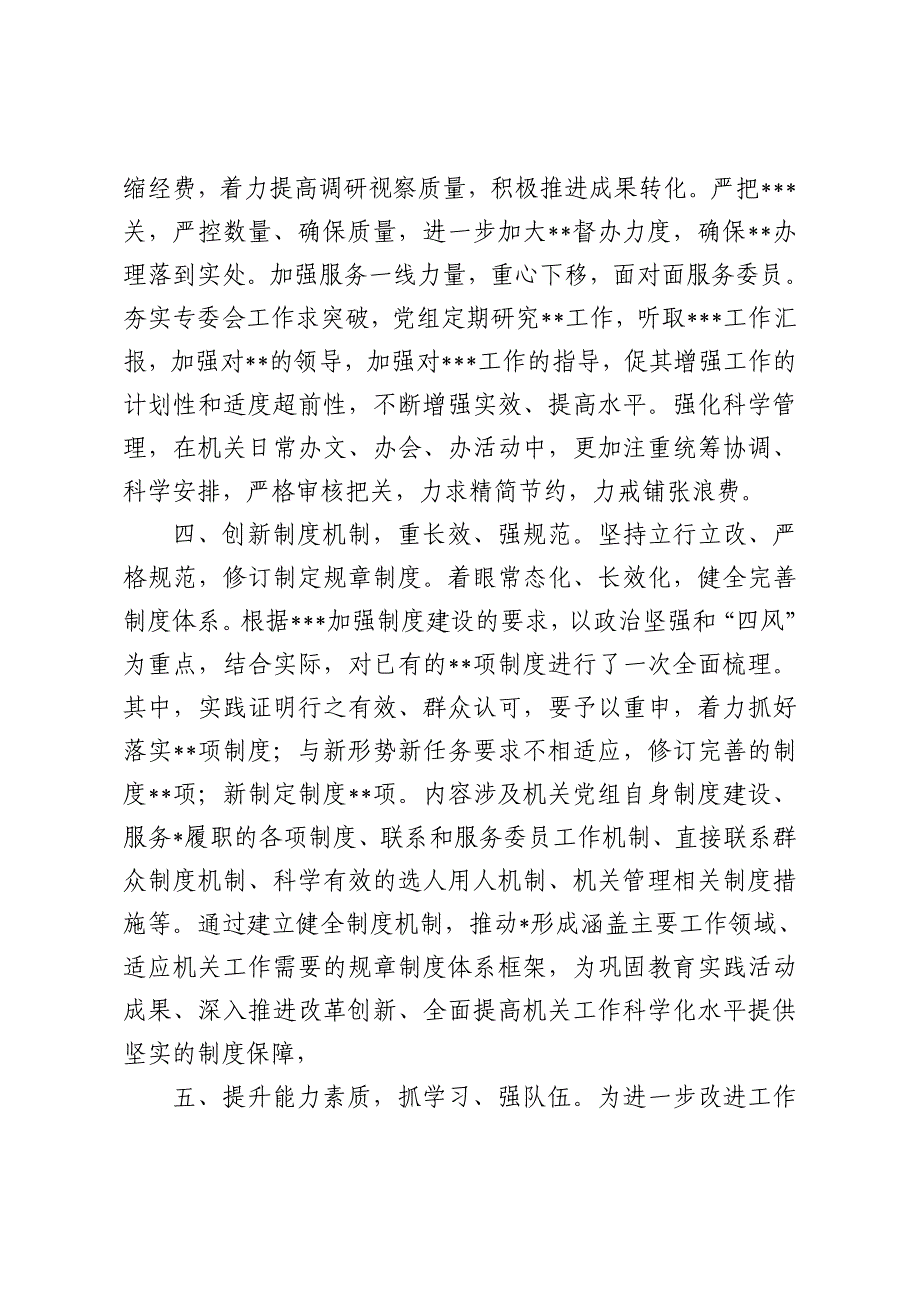 缩经费，着力提高调研视察质量，积极推进成果转化。严把***
关，严控数量、确保质量，进一步加大**督办力度，确保**办
理落到实处。加强服务一线力量，重心下移，面对面服务委员。
夯实专委会工作求突破，党组定期研究**工作，听取***工作汇
报，加强对**的领导，加强对***工作的指导，促其增强工作的
计划性和适度超前性，不断增强实效、提高水平。强化科学管
理，在机关日常办文、办会、办活动中，更加注重统筹协调、
科学安排，严格审核把关，力求精简节约，力戒铺张浪费。
四、创新制度机制，重长效、强规范。坚持立行立改、严
格规范，修订制定规章制度。着眼常态化、长效化，健全完善
制度体系。根据***加强制度建设的要求，以政治坚强和“四风”
为重点，结合实际，对已有的**项制度进行了一次全面梳理。
其中，实践证明行之有效、群众认可，要予以重申，着力抓好
落实**项制度；与新形势新任务要求不相适应，修订完善的制
度**项；新制定制度**项。内容涉及机关党组自身制度建设、
服务*履职的各项制度、联系和服务委员工作机制、直接联系群
众制度机制、科学有效的选人用人机制、机关管理相关制度措
施等。通过建立健全制度机制，推动*形成涵盖主要工作领域、
适应机关工作需要的规章制度体系框架，为巩固教育实践活动
成果、深入推进改革创新、全面提高机关工作科学化水平提供
坚实的制度保障，
五、提升能力素质，抓学习、强队伍。为进一步改进工作